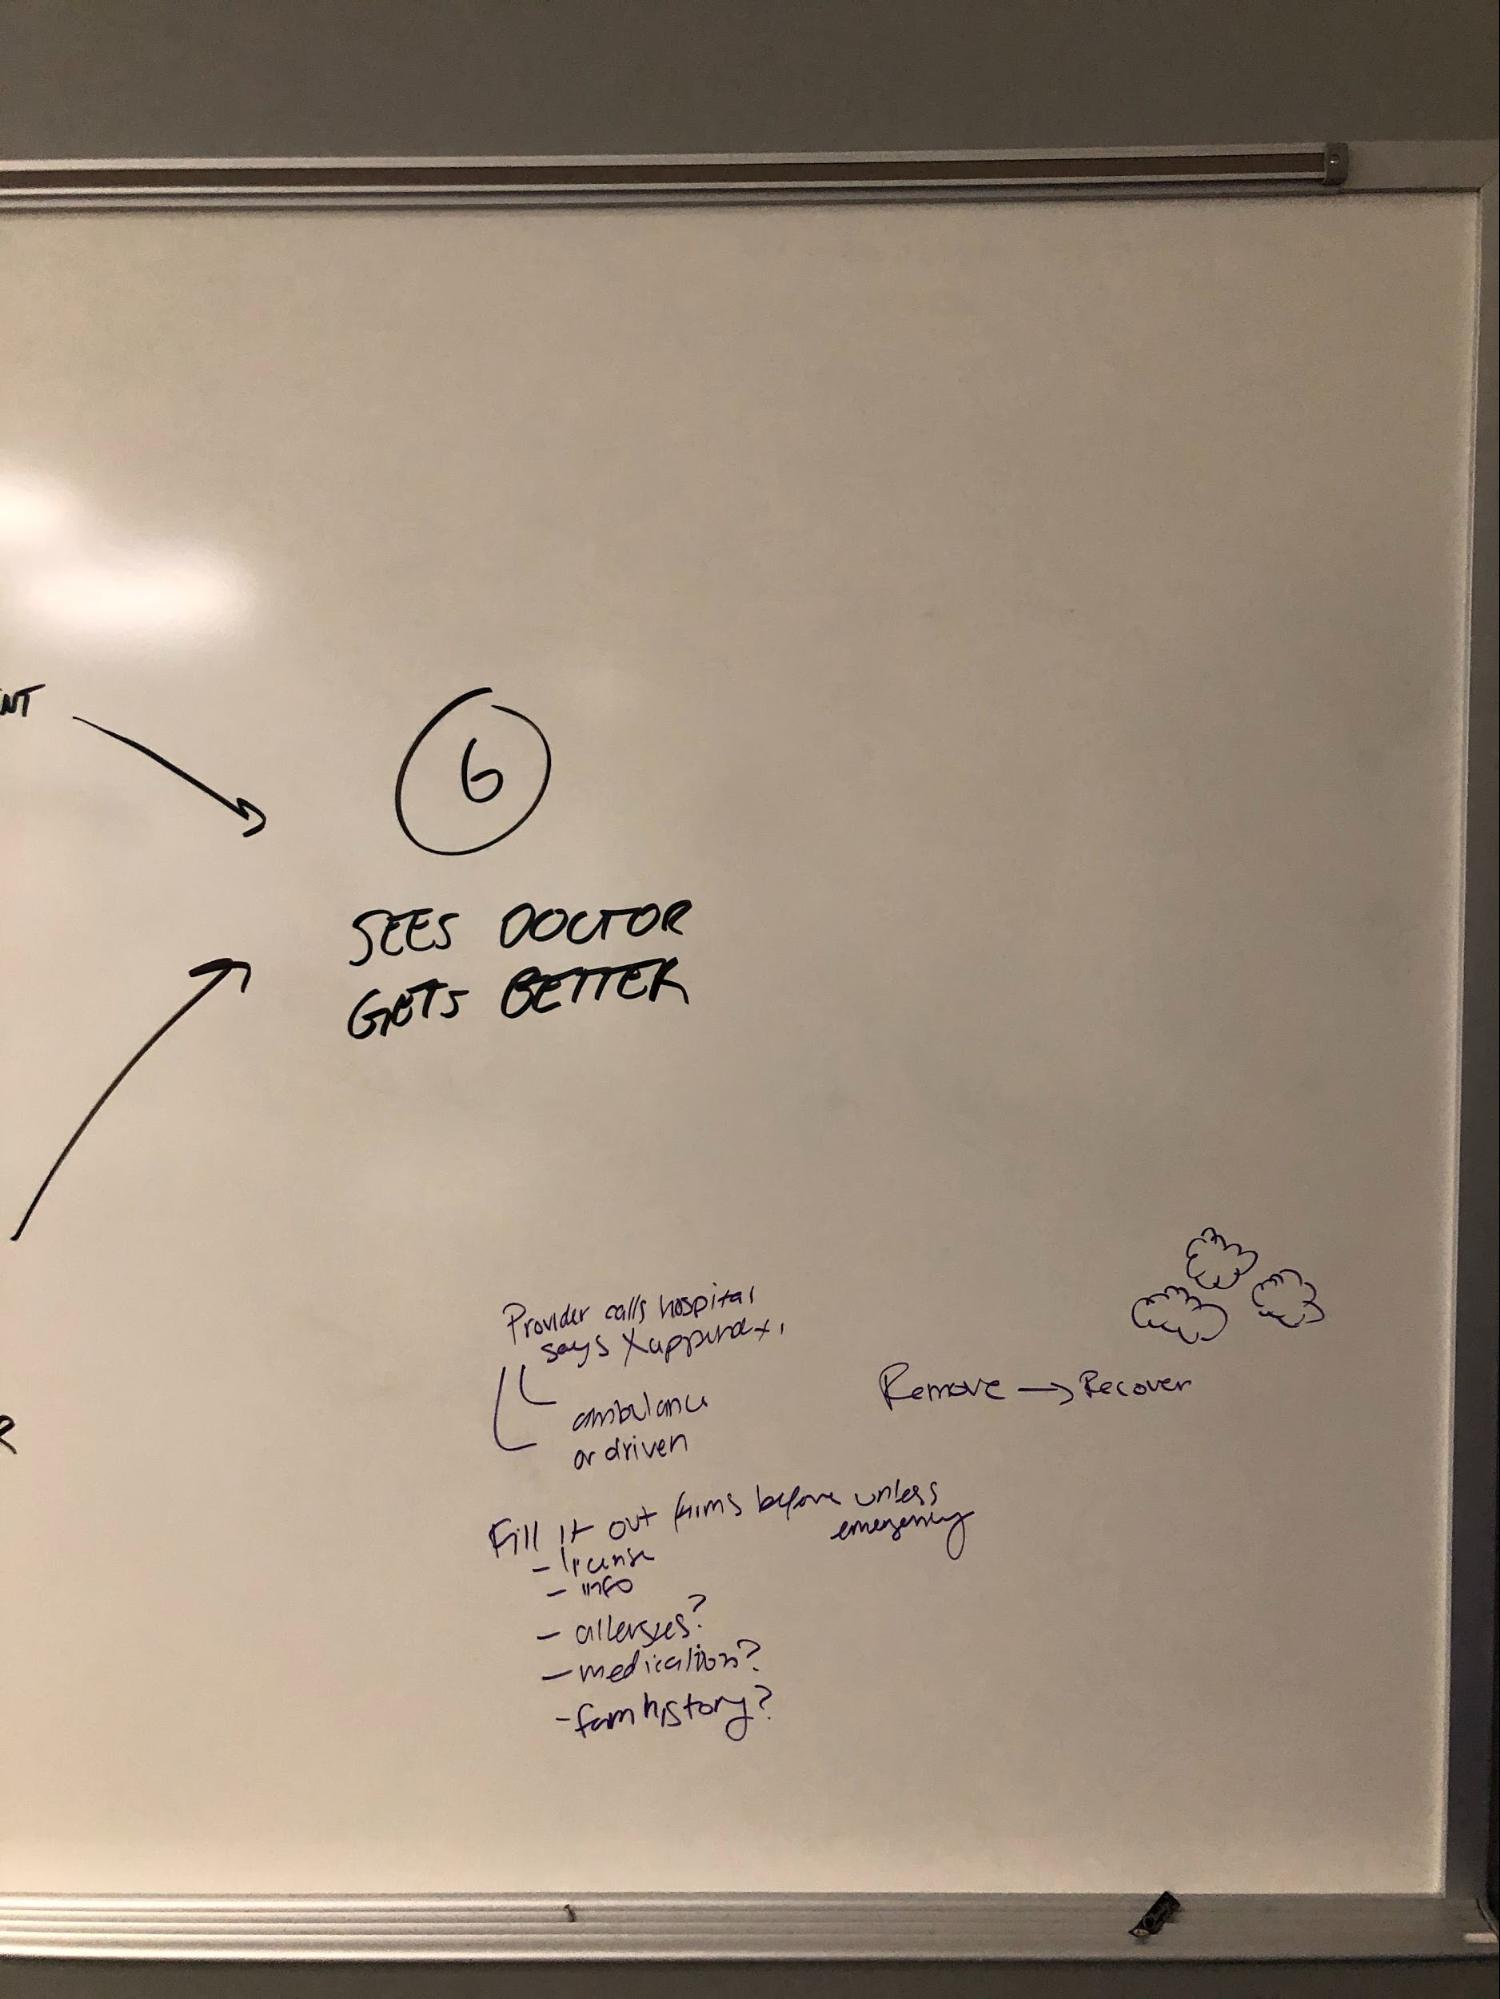 NT
6
SEES DOCTOR
GETS BETTER
R
Provider calls hospital
says
ambulance
or driven
Remove → Recover
Fill it out forms before unless
emergency
- license
- info
- allergies?
- medication?
- fam history?